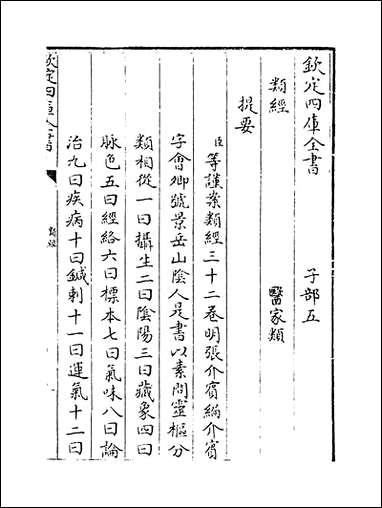 欽定四庫全書　子部五
類經　醫家類
提要
臣等謹案類經三十二卷明張介賓編介賓
字會卿號景岳山陰人是書以素問靈樞分
類相從一曰攝生二曰陰陽三曰藏象四曰
脉色五曰經絡六曰標本七曰氣味八曰論
治九曰疾病十曰鍼刺十一曰運氣十二曰
欽定四庫全書
類經